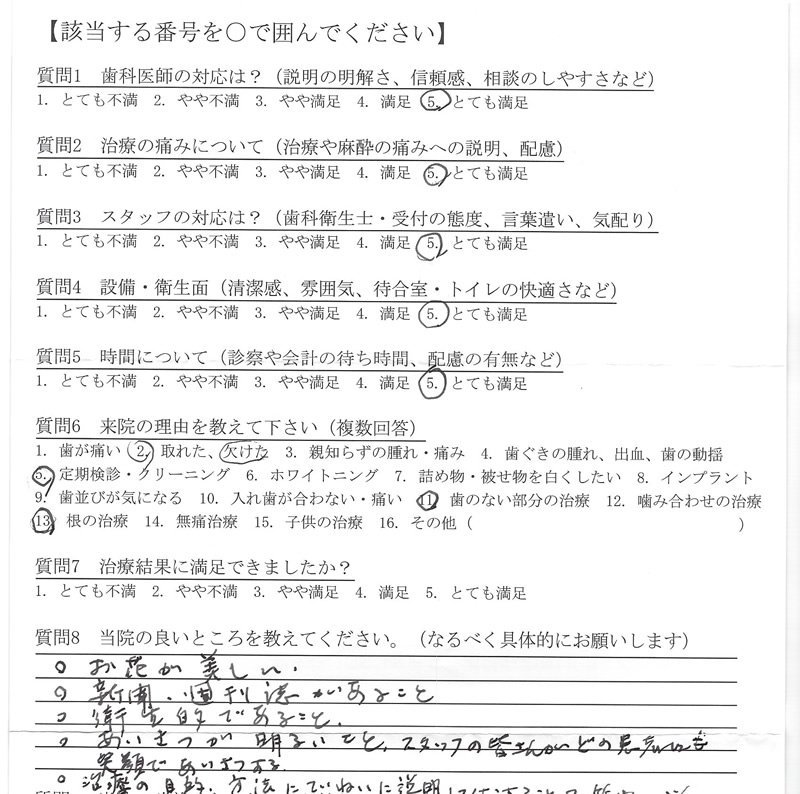 【該当する番号を○で囲んでください】
質問1　歯科医師の対応は？（説明の明解さ、信頼感、相談のしやすさなど）
1. とても不満　2. やや不満　3. やや満足　4. 満足　5. とても満足
質問2　治療の痛みについて（治療や麻酔の痛みへの説明、配慮）
1. とても不満　2. やや不満　3. やや満足　4. 満足　5. とても満足
質問3　スタッフの対応は？（歯科衛生士・受付の態度、言葉遣い、気配り）
1. とても不満　2. やや不満　3. やや満足　4. 満足　5. とても満足
質問4　設備・衛生面（清潔感、雰囲気、待合室・トイレの快適さなど）
1. とても不満　2. やや不満　3. やや満足　4. 満足　5. とても満足
質問5　時間について（診察や会計の待ち時間、配慮の有無など）
1. とても不満　2. やや不満　3. やや満足　4. 満足　5. とても満足
質問6　来院の理由を教えて下さい（複数回答）
1. 歯が痛い　2. 取れた、欠けた　3. 親知らずの腫れ・痛み　4. 歯ぐきの腫れ、出血、歯の動揺
5. 定期検診・クリーニング　6. ホワイトニング　7. 詰め物・被せ物を白くしたい　8. インプラント
9. 歯並びが気になる　10. 入れ歯が合わない・痛い　11. 歯のない部分の治療　12. 噛み合わせの治療
13. 根の治療　14. 無痛治療　15. 子供の治療　16. その他（　　　）
質問7　治療結果に満足できましたか？
1. とても不満　2. やや不満　3. やや満足　4. 満足　5. とても満足
質問8　当院の良いところを教えてください。（なるべく具体的にお願いします）
○ お花が美しい.
○ 新聞.週刊誌があること
○ 衛生的であること.
○ あいさつが明るいこと、スタッフの皆さんがどの患者にも
笑顔であいさつする
○ 治療の目的、方法にていねいに説明